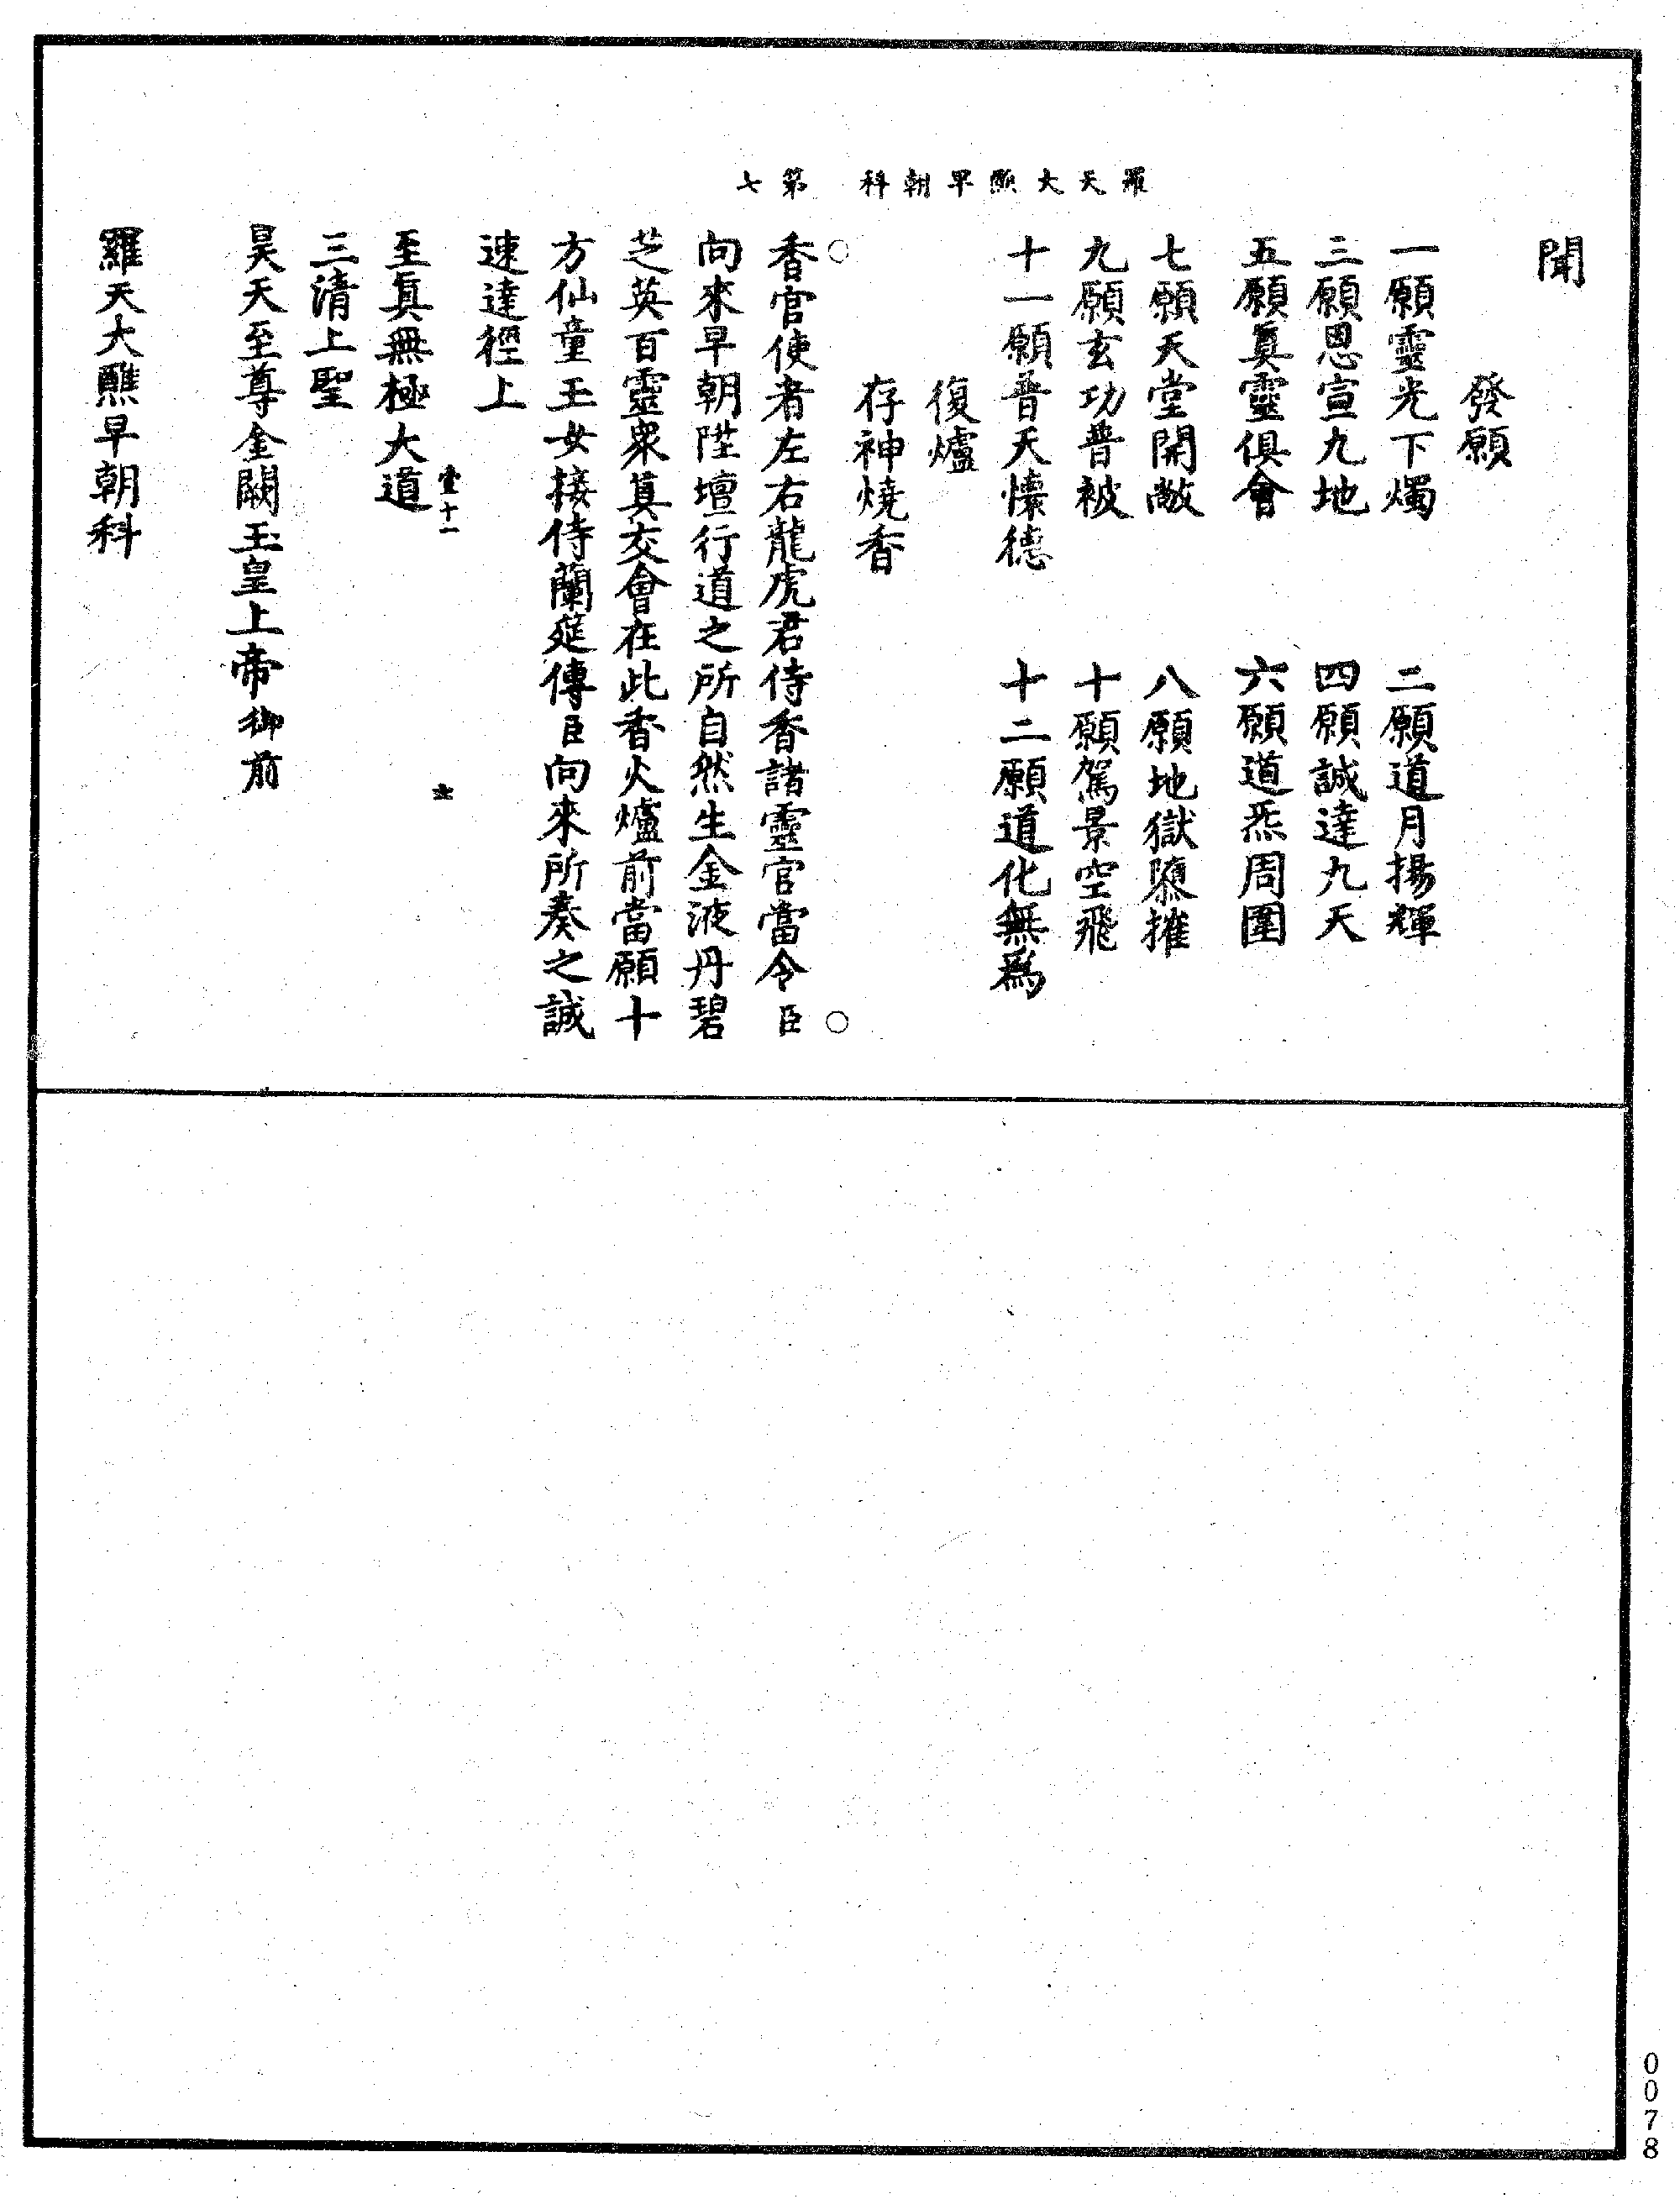 羅天大醮早朝科　第七
聞
發願
一願靈光下燭　二願道月揚輝
三願恩宣九地　四願誠達九天
五願眞靈俱會　六願道炁周圍
七願天堂開敞　八願地獄隳摧
九願玄功普被　十願駕景空飛
十一願普天懷德　十二願道化無爲
復爐
存神燒香
香官使者左右龍虎君侍香諸靈官當令臣
向來早朝陞壇行道之所自然生金液丹碧
芝英百靈衆眞交會在此香火爐前當願十
方仙童玉女接侍蘭筵傳臣向來所奏之誠
速達徑上
至眞無極大道
三清上聖
昊天至尊金闕玉皇上帝御前
羅天大醮早朝科
0078